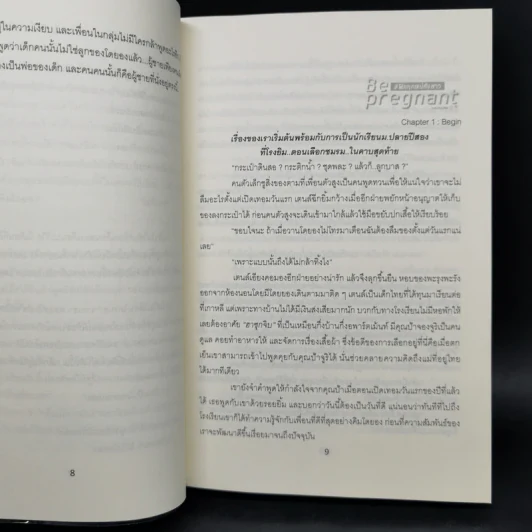 ในความเงียบ และเพื่อนในกลุ่มไม่มีใครกล้าพูดอะไร
ว่าเด็กคนนั้นไม่ใช่ลูกของโดยองแล้ว...
เป็นพ่อของเด็ก และคนคนนั้นก็คือผู้ชายที่นั่งอยู่ตรงนี้
8
Be
pregnant
Chapter 1 : Begin
เรื่องของเราเริ่มต้นพร้อมกับการเป็นนักเรียนม.ปลายปีสอง
ที่โรงยิม..ตอนเลือกชมรม..ในคาบสุดท้าย
"กระเป๋าดินสอ ? กระติกน้ำ ? ชุดพละ ? แล้วก็..ลูกบาส ?"
คนตัวเล็กชูสิ่งของตามที่เพื่อนตัวสูงเป็นคนพูดทวนเพื่อให้แน่ใจว่าเขาจะไม่
ลืมอะไรตั้งแต่เปิดเทอมวันแรก เตนล์ฉีกยิ้มกว้างเมื่ออีกฝ่ายพยักหน้าอนุญาตให้เก็บ
ของลงกระเป๋าได้ ก่อนคนตัวสูงจะเดินเข้ามาใกล้แล้วใช้มือขยับปกเสื้อให้เรียบร้อย
"ขอบใจนะ ถ้าเมื่อวานโดยองไม่โทรมาเตือนฉันต้องลืมของตั้งแต่วันแรกแน่
เลย"
"เพราะแบบนั้นถึงได้ไม่กล้าทิ้งไง"
เตนล์เอียงคอมองอีกฝ่ายอย่างน่ารัก แล้วจึงลุกขึ้นยืน หอบของพะรุงพะรัง
ออกจากห้องนอนโดยมีโดยองเดินตามมาติด ๆ เตนล์เป็นเด็กไทยที่ได้ทุนมาเรียนต่อ
ที่เกาหลี แต่เพราะทางบ้านไม่ได้มีเงินส่งเสียมากนัก บวกกับทางโรงเรียนไม่มีหอพักให้
เลยต้องอาศัย "ฮาซุกจิบ" ที่เป็นเหมือนกึ่งบ้านกึ่งอพาร์ตเม้นท์ มีคุณป้าจองจูริเป็นคน
ดูแล คอยทำอาหารให้ และจัดการเรื่องเสื้อผ้า ซึ่งข้อดีของการเลือกอยู่ที่นี่คือเมื่อตก
เย็นเขาสามารถเข้าไปพูดคุยกับคุณป้าจูริได้ นั่นช่วยคลายความคิดถึงแม่ที่อยู่ไทย
ได้มากทีเดียว
เขายังจำคำพูดให้กำลังใจจากคุณป้าเมื่อตอนเปิดเทอมวันแรกของปีที่แล้ว
ได้ เธอพูดกับเขาด้วยรอยยิ้ม และบอกว่าวันนี้ต้องเป็นวันที่ดี แน่นอนว่าทันทีที่ไปถึง
โรงเรียนเขาก็ได้ทำความรู้จักกับเพื่อนที่ดีที่สุดอย่างคิมโดยอง ก่อนที่ความสัมพันธ์ของ
เราจะพัฒนาดีขึ้นเรื่อยมาจนถึงปัจจุบัน
9